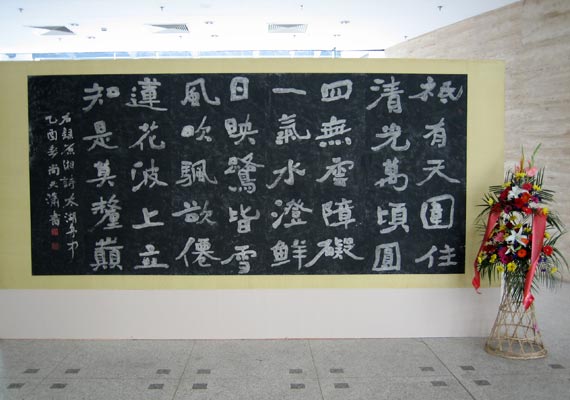 祗有天圍住
清光萬頃圓
四無雲障礙
一氣水澄鮮
日映鷺皆雪
風吹颿欲僊
蓮花波上立
知是莫釐巔
右錄原湘詩太湖舟中
乙酉春尚天瀟書